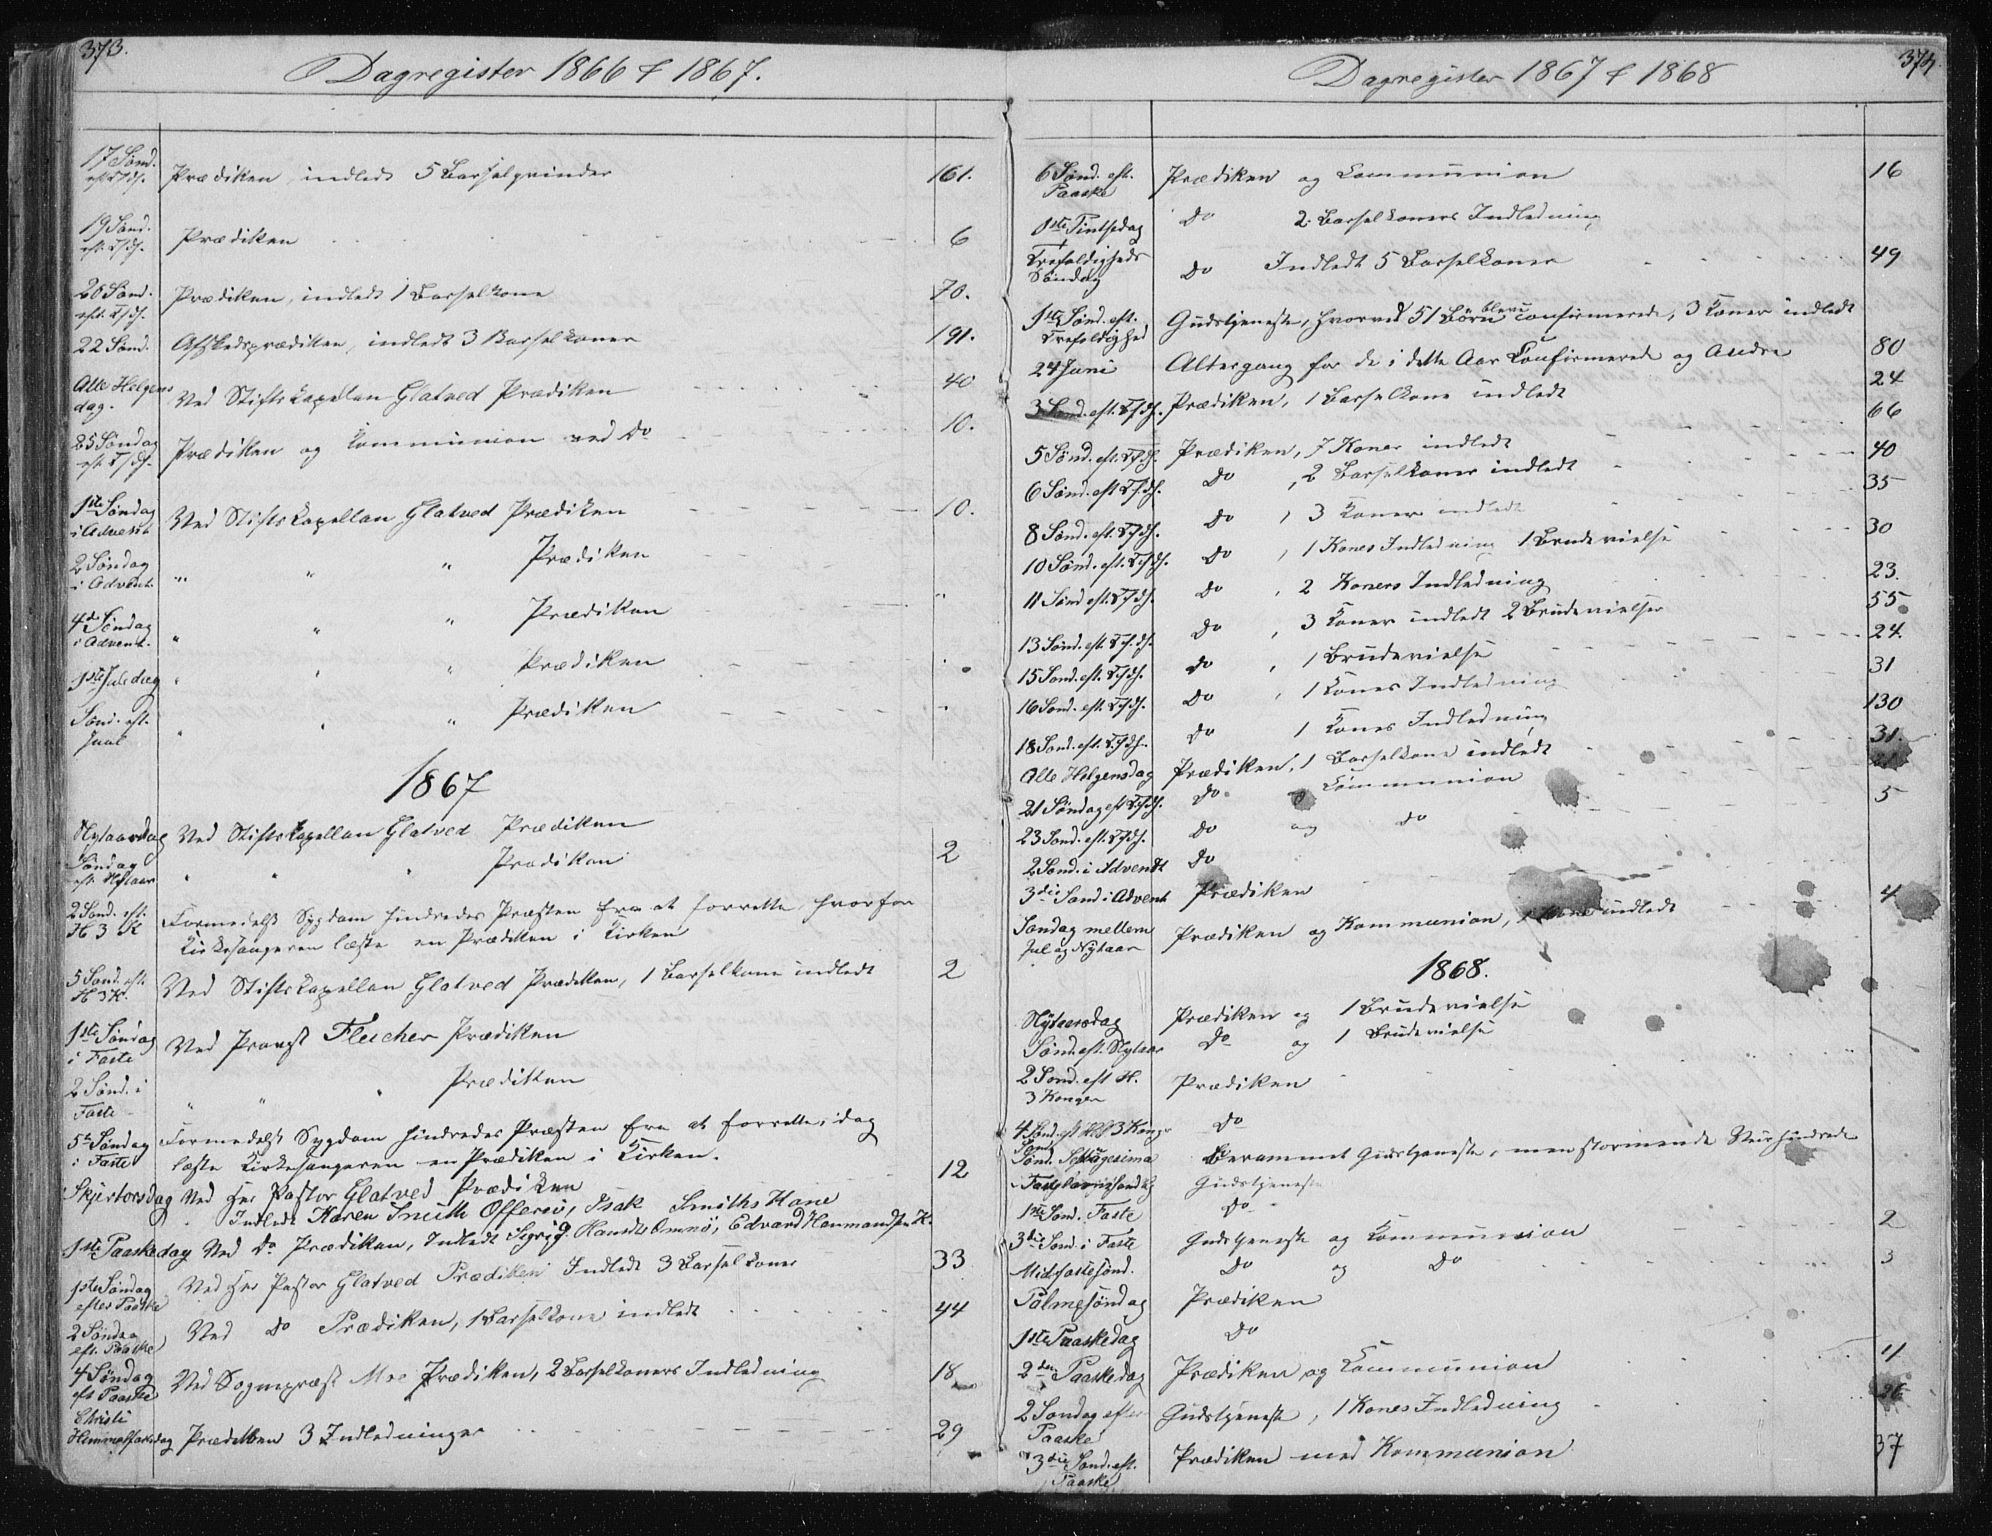 373.
Dagregister 1866 & 1867.
17 Sønd. eft. Tr/dh. Prædiken, indledt 5 Barselqvinder 161.
19 Sønd. eft. Tr/dh. Prædiken 6
20 Sønd. eft. Tr/dh. Prædiken, indledt 1 Barselkone 70.
22 Sønd. Afskedsprædiken, indledt 3 Barselkoner 191.
Alle Helgens dag. Ved Stiftskapellan Glatved Prædiken 40
25 Søndag eft. Tr/dh. Prædiken og Communion ved Do 10.
1ste Søndag i Advent Ved Stiftskapellan Glatved Prædiken 10.
2 Søndag i Advent. " " " Prædiken
4de Søndag i Advent. " " " Prædiken
1ste Juledag " " " Prædiken
Sønd. eft. Juul " " " Prædiken
1867
Nytaarsdag Ved Stiftskapellan Glatved Prædiken
Søndag eft. Nytaar " " " Prædiken 2
2 Sønd. eft. H 3 K Formedelst Sygdom hindredes Præsten fra at forrette, hvorfor
Kirkesangeren læste en Prædiken i Kirken
5 Sønd. eft. H 3 K. Ved Stiftskapellan Glatved Prædiken, 1 Barselkone indledt 2
1ste Søndag i Faste Ved Provst Fleischer Prædiken
2 Sønd. i Faste " " " Prædiken
5te Søndag i Faste Formedelst Sygdom hindredes Præsten fra at forrette, idag
læste Kirkesangeren en Prædiken i Kirken.
Skjærtorsdag Ved Hr Pastor Glatved Prædiken 12
Indledt Karen Smith Offersø, Isak Smiths Kone
1ste Paaskedag Ved Do Prædiken, Indledt Sigrid Hansd. Omnø, Edvard Hermandsen K.
1ste Søndag efter Paaske Ved Hr Pastor Glatved Prædiken Indledt 3 Barselkoner 33
2 Søndag eft. Paaske Ved Do Prædiken, 1 Barselkone indledt 44
4 Søndag eft Paaske Ved Sognepræst Moe Prædiken, 2 Barselkoners Indledning 18
Christi Himmelfartsdag Prædiken 3 Indledninger 29
374.
Dagregister 1867 & 1868
6 Sønd. eft. Paaske Prædiken og Communion 16
1ste Pintsedag Do 2 Barselkoners Indledning
Trefoldigheds Søndag Do Indledt 5 Barselkoner 49
1ste Sønd. eft. Trefoldighed Gudstjeneste, hvorved 51 Børn bleve confirmerede, 3 Koner indledt
24 Juni Altergang for de i dette Aar Confirmerede og Andre 80
3 Sønd. eft. Tr/dh. Prædiken, 1 Barselkone indledt 24
66
5 Sønd. eft. Tr/dh. Prædiken, 7 Koner indledt 40
6 Sønd. eft Tr/dh. Do , 2 Barselkoner indledt 35
8 Sønd. eft. Tr/dh. Do , 3 Koner indledt
10 Sønd. eft. Tr/dh. Do , 1 Kones Indledning 1 Brudevielse 30
11 Sønd eft. Tr/dh. Do , 2 Koners Indledning 23.
13 Sønd. eft. Tr/dh. Do , 3 Koner indledt 2 Brudevielser 55
15 Sønd. eft. Tr/dh. Do , 1 Brudevielse 24
16 Sønd. eft. Tr/dh. Do , 1 Kones Indledning 31
18 Sønd. eft. Tr/dh. Do 1 Kones Indledning 130
Alle Helgensdag Prædiken, 1 Barselkone indledt 31
21 Søndag eft Tr/dh. Do og Communion
23 Sønd. eft. Tr/dh. Do og Do 5
2 Sønd. i Advendt Do
3die Sønd i Advent Prædiken
Søndag mellem Jul og Nytaar Prædiken og Kommunion, 1 Kone indledt 4
1868.
Nytaarsdag Prædiken og 1 Brudevielse
Sønd. eft. Nytaar Do og 1 Brudevielse
2 Sønd. eft H. 3 Konger Prædiken
4 Sønd. eft Hel 3 Konger Do
Sønd. Septuagesima Berammet Gudstjeneste, men stormende Veir hindrede
Fastelavnssøndag Gudstjeneste
1ste Sønd. Faste Do
3die Sønd. i Faste Gudstjeneste og Communion 2
Midfastesønd. Do og Do 3
Palmesøndag Prædiken
1ste Paaskedag Do
2den Paaskedag Prædiken og Communion 11
2 Søndag efter Paaske Gudstjeneste, 1 Kones Indledning 26
3die Sønd. eft. Paaske Prædiken med Kommunion 37